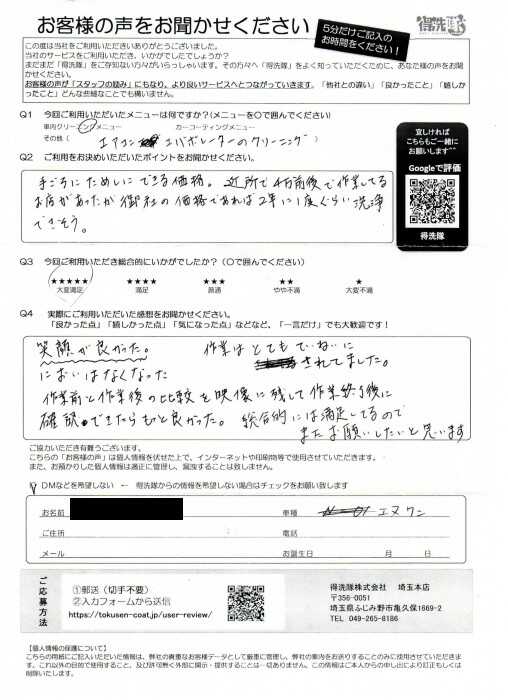 お客様の声をお聞かせください
5分だけご記入の
お時間をください！
得洗隊
この度は当社をご利用いただきありがとうございました。
当社のサービスをご利用いただき、いかがでしたでしょうか？
まだまだ「得洗隊」をご存知ない方々がいらっしゃいます。その方々へ「得洗隊」をよく知っていただくために、あなた様の声をお聞かせください。
お客様の声が「スタッフの励み」にもなり、より良いサービスへとつながっていきます。「他社との違い」「良かったこと」「嬉しかったこと」どんな些細なことでも構いません。
Q1 今回ご利用いただいたメニューは何ですか？（メニューを〇で囲んでください）
車内クリーニングメニュー カーコーティングメニュー
その他（ エアコン エバポレーターのクリーニング ）
Q2 ご利用をお決めいただいたポイントをお聞かせください。
手ごろにためしにできる価格。近所で4万前後で作業してる
お店があったが御社の価格であれば2年に1度ぐらい洗浄
できそう。
宜しければ
こちらもご一緒に
お願いします^^
Googleで評価
得洗隊
Q3 今回ご利用いただき総合的にいかがでしたか？（〇で囲んでください）
★★★★★ ★★★★ ★★★ ★★ ★
大変満足 満足 普通 やや不満 大変不満
Q4 実際にご利用いただいた感想をお聞かせください。
「良かった点」「嬉しかった点」「気になった点」などなど、「一言だけ」でも大歓迎です！
笑顔が良かった。 作業はとてもていねいに
されてました。
においはなくなった
作業前と作業後の比較を映像に残して作業終了後に
確認できたらもっと良かった。 総合的には満足してるので
またお願いしたいと思います
ご協力いただき有難うございます。
こちらの「お客様の声」は個人情報を伏せた上で、インターネットや印刷物等で使用させていただきます。
また、お預かりした個人情報は適正に管理し、漏洩することは致しません。
DMなどを希望しない ← 得洗隊からの情報を希望しない場合はチェックをお願い致します
お名前 車種 エヌワン
ご住所 電話
メール お誕生日 年 月 日
ご応募方法
①郵送（切手不要）
②入力フォームから送信
https://tokusen-coat.jp/user-review/
得洗隊株式会社 埼玉本店
〒356-0051
埼玉県ふじみ野市亀久保1669-2
TEL 049-265-8186
【個人情報の保護について】
こちらの用紙にご記入いただいた情報は、弊社の貴重なお客様データとして厳重に管理し、弊社の案内をお送りすることのみに使用させていただきます。これ以外の目的で使用すること、及び許可無く外部に開示・提供することは一切ありません。この情報はご本人からの申し出により訂正もしくは削除いたします。